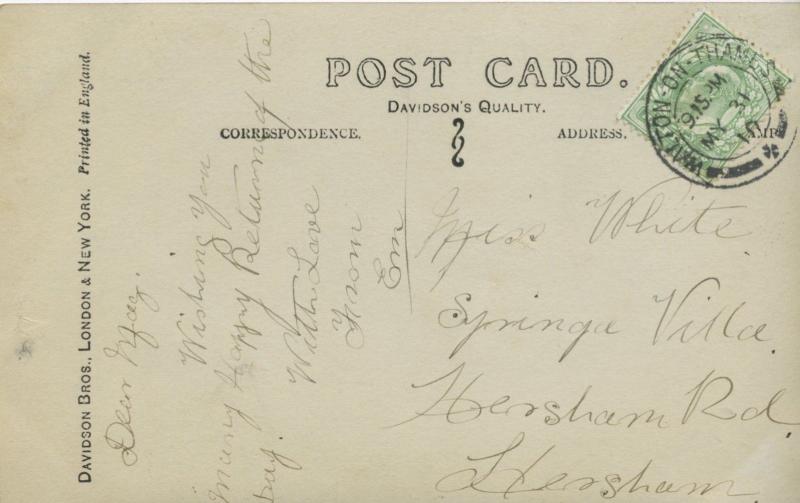 POST CARD.
DAVIDSON'S QUALITY.
CORRESPONDENCE.
ADDRESS.
DAVIDSON BROS., LONDON & NEW YORK. Printed in England.
WALTON-ON-THAMES
9.15 PM
MY 31
11
Dear May.
Wishing You
many Happy Returns of the
Day.
With Love
From
Em
Miss White
Syringa Villa
Hersham Rd
Hersham